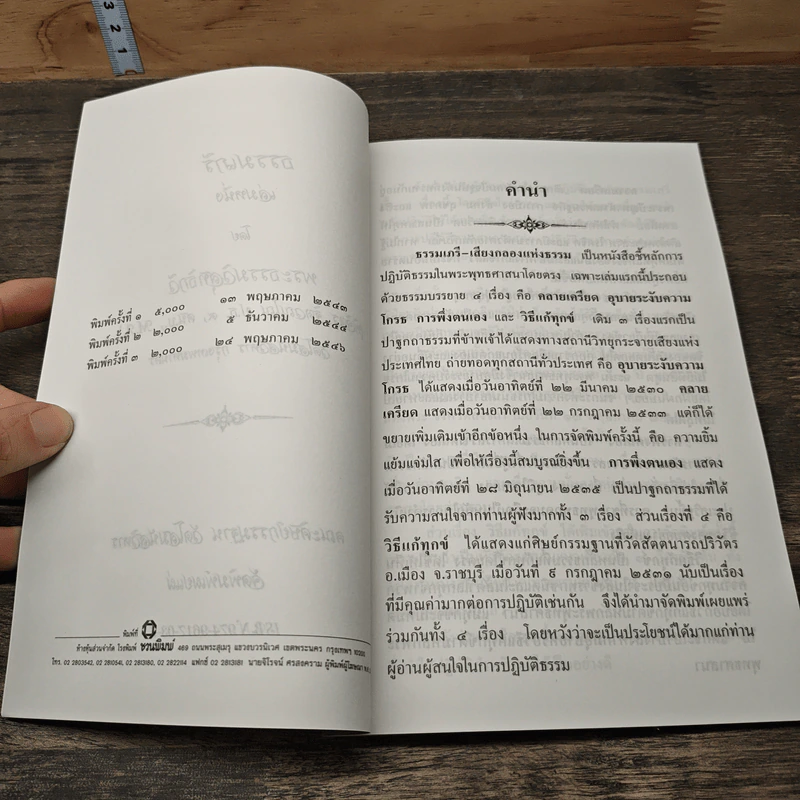 พิมพ์ครั้งที่ ๑ ๕,๐๐๐ ๑๓ พฤษภาคม ๒๕๔๓
พิมพ์ครั้งที่ ๒ ๒,๐๐๐ ๕ ธันวาคม ๒๕๔๔
พิมพ์ครั้งที่ ๓ ๒,๐๐๐ ๒๔ พฤษภาคม ๒๕๔๖
พิมพ์ที่
ห้างหุ้นส่วนจำกัด โรงพิมพ์ ชวนพิมพ์ 469 ถนนพระสุเมรุ แขวงบวรนิเวศ เขตพระนคร กรุงเทพฯ
โทร. 02 2803542, 02 2810541, 02 2813180, 02 282264 แฟกซ์ 02 2813181 นายจิโรจน์ ศรสงคราม ผู้พิมพ์ผู้โฆษณา
คำนำ
ธรรมเภรี-เสียงกลองแห่งธรรม เป็นหนังสือชี้หลักการ
ปฏิบัติธรรมในพระพุทธศาสนาโดยตรง เฉพาะเล่มแรกนี้ประกอบ
ด้วยธรรมบรรยาย ๔ เรื่อง คือ คลายเครียด อุบายระงับความ
โกรธ การพึ่งตนเอง และ วิธีแก้ทุกข์ เดิม ๓ เรื่องแรกเป็น
ปาฐกถาธรรมที่ข้าพเจ้าได้แสดงทางสถานีวิทยุกระจายเสียงแห่ง
ประเทศไทย ถ่ายทอดทุกสถานีทั่วประเทศ คือ อุบายระงับความ
โกรธ ได้แสดงเมื่อวันอาทิตย์ที่ ๒๒ มีนาคม ๒๕๓๐ คลาย
เครียด แสดงเมื่อวันอาทิตย์ที่ ๒๒ กรกฎาคม ๒๕๓๓ แต่ก็ได้
ขยายเพิ่มเติมเข้าอีกข้อหนึ่ง ในการจัดพิมพ์ครั้งนี้ คือ ความยิ้ม
แย้มแจ่มใส เพื่อให้เรื่องนี้สมบูรณ์ยิ่งขึ้น การพึ่งตนเอง แสดง
เมื่อวันอาทิตย์ที่ ๒๘ มิถุนายน ๒๕๓๕ เป็นปาฐกถาธรรมที่ได้
รับความสนใจจากท่านผู้ฟังมากทั้ง ๓ เรื่อง ส่วนเรื่องที่ ๔ คือ
วิธีแก้ทุกข์ ได้แสดงแก่ศิษย์กรรมฐานที่วัดสัตตนารถปริวัตร
อ.เมือง จ.ราชบุรี เมื่อวันที่ ๙ กรกฎาคม ๒๕๓๑ นับเป็นเรื่อง
ที่มีคุณค่ามากต่อการปฏิบัติเช่นกัน จึงได้นำมาจัดพิมพ์เผยแพร่
ร่วมกันทั้ง ๔ เรื่อง โดยหวังว่าจะเป็นประโยชน์ได้มากแก่ท่าน
ผู้อ่านผู้สนใจในการปฏิบัติธรรม
3
2
1